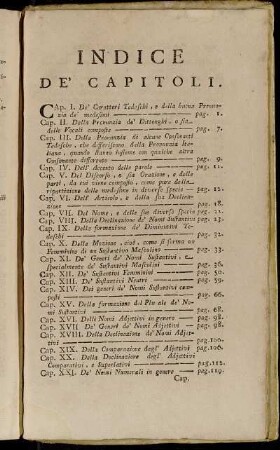 INDICE
DE' CAPITOLI.
CAp. I. De' Caratteri Tedeschi, e della buona Pronun-
zia de' medesimi pag. 1.
Cap. II. Della Pronunzia de' Dittonghi, o sia
delle Vocali composte pag. 7.
Cap. III. Della Pronunzia di alcune Consonanti
Tedesche, che differiscono dalla Pronunzia Ita-
liana, quando stanno insieme con qualche altra
Consonante differente pag. 9.
Cap. IV. Dell' Accento delle parole pag. 11.
Cap. V. Del Discorso, o sia Orazione, e delle
parti, da cui viene composto, come pure della
ripartizione delle medesime in diverse specie pag. 12.
Cap. VI. Dell' Articolo, e della sua Declina-
zione pag. 18.
Cap. VII. Del Nome, e delle sue diverse specie pag. 21.
Cap. VIII. Della Declinazione de' Nomi Sustantivi pag. 22.
Cap. IX. Della formazione de' Diminutivi Te-
deschi pag. 32.
Cap. X. Della Mozione, cioè, come si forma un
Femminino da un Sustantivo Mascolino pag. 33.
Cap. XI. De' Generi de' Nomi Sustantivi, e
specialmente de' Sustantivi Mascolini pag. 36.
Cap. XII. De' Sustantivi Femminini pag. 50.
Cap. XIII. De' Sustantivi Neutri pag. 59.
Cap. XIV. Dei generi de' Nomi Sustantivi com-
posti pag. 66.
Cap. XV. Della formazione del Plurale de' No-
mi Sustantivi pag. 68.
Cap. XVI. Delli Nomi Adjettivi in genere pag. 98.
Cap. XVII De' Generi de' Nomi Adjettivi pag. 98.
Cap. XVIII. Della Declinazione de' Nomi Adjet-
tivi pag. 100.
Cap. XIX. Della Comparazione degl' Adjettivi pag. 106.
Cap. XX. Della Declinazione degl' Adjettivi
Comparativi, e Superlativi pag. 112.
Cap. XXI. De' Nomi Numerali in genere pag. 119.
Cap.